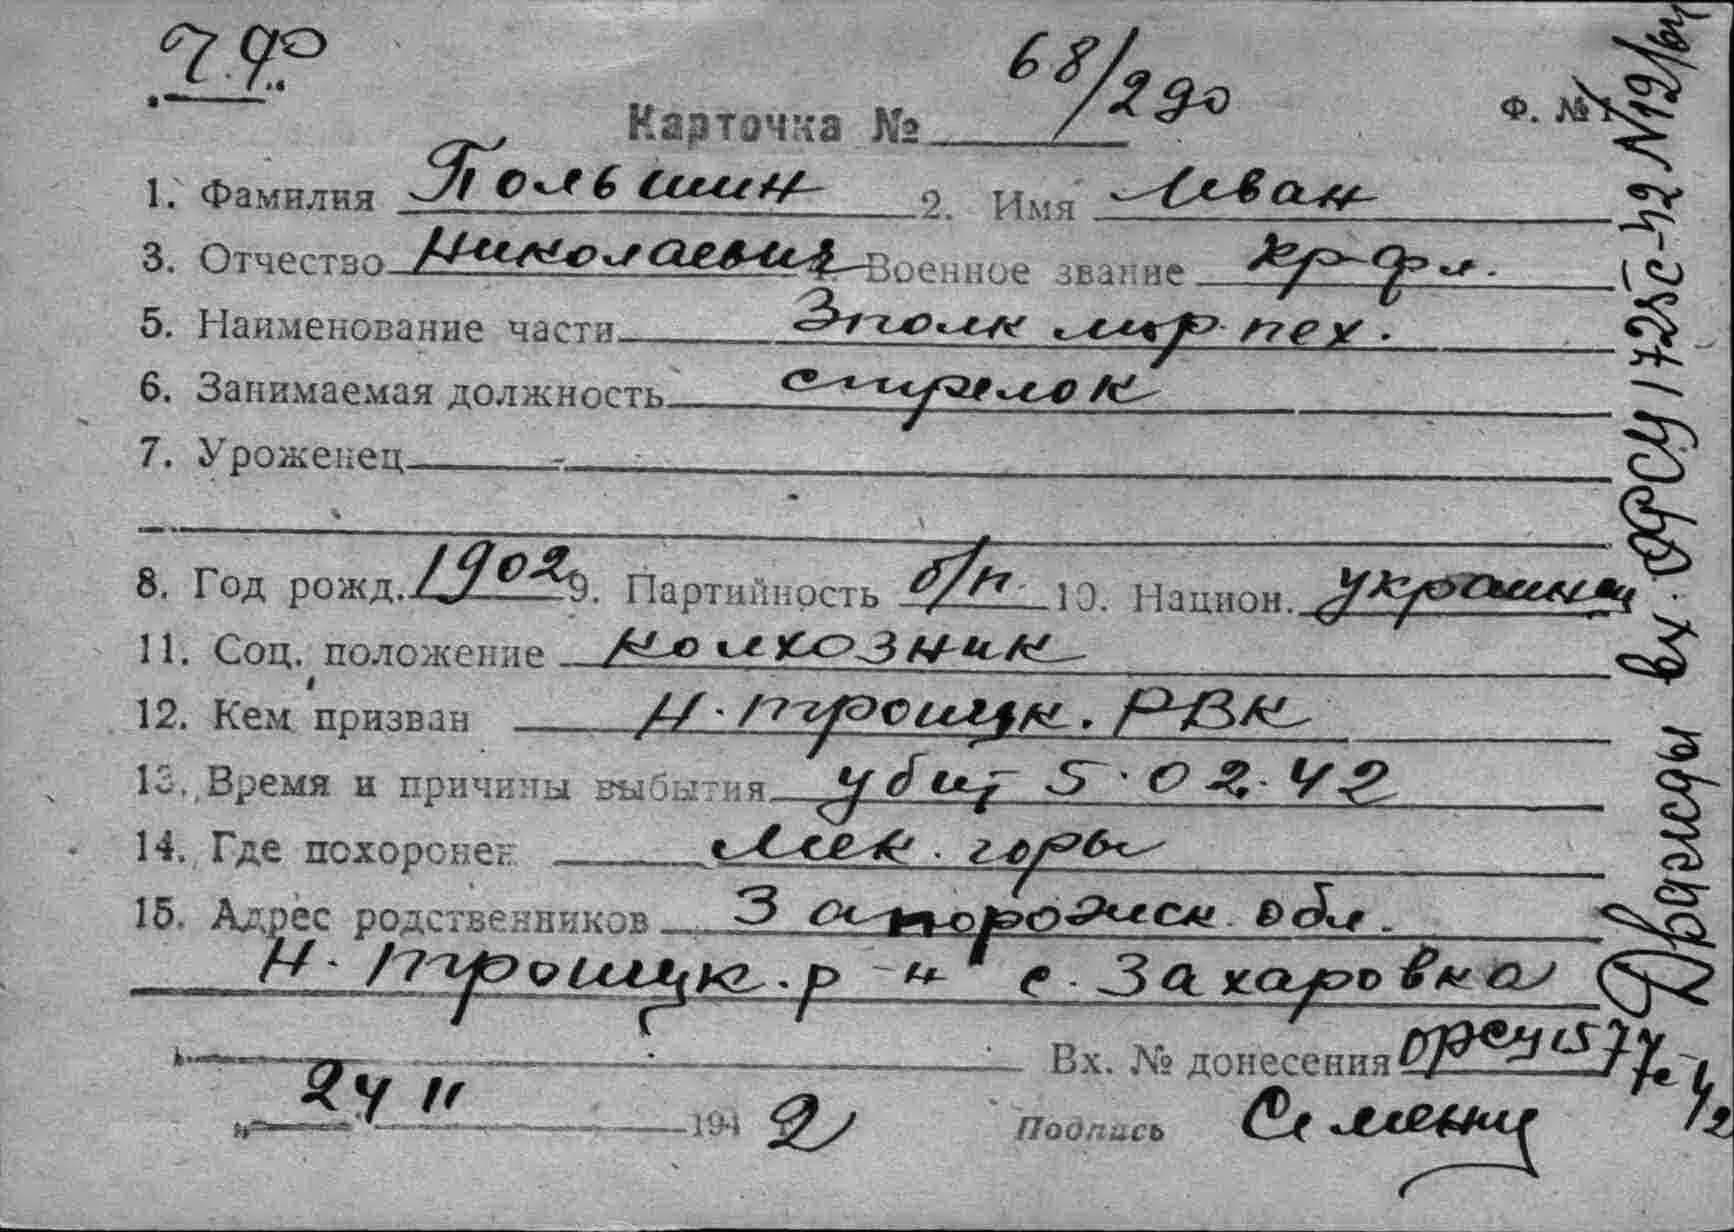 Ч.Ф
68/290
Карточка № Ф. №1
1. Фамилия Польшин 2. Имя Иван
3. Отчество Николаевич Военное звание кр-фл.
5. Наименование части 3 полк мор. пех.
6. Занимаемая должность стрелок
7. Уроженец
8. Год рожд. 1902 9. Партийность б/п. 10. Национ. украинец
11. Соц. положение колхозник
12. Кем призван Н. троицк. РВК
13. Время и причины выбытия убит 5.02.42
14. Где похоронен Мек. горы
15. Адрес родственников Запорожск. обл.
Н. троицк. р-н с. Захаровка
Вх. № донесения ОРСУ 1577с-42
24 11 1942 Подпись
Дважды вх. ОРСУ 1725с-42 N192